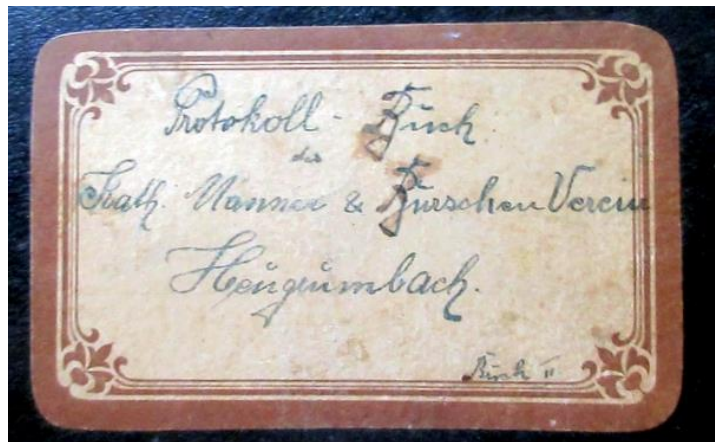 Protokoll-Buch
des
Kath. Männer & Burschen Verein
Heugrumbach.
Buch II